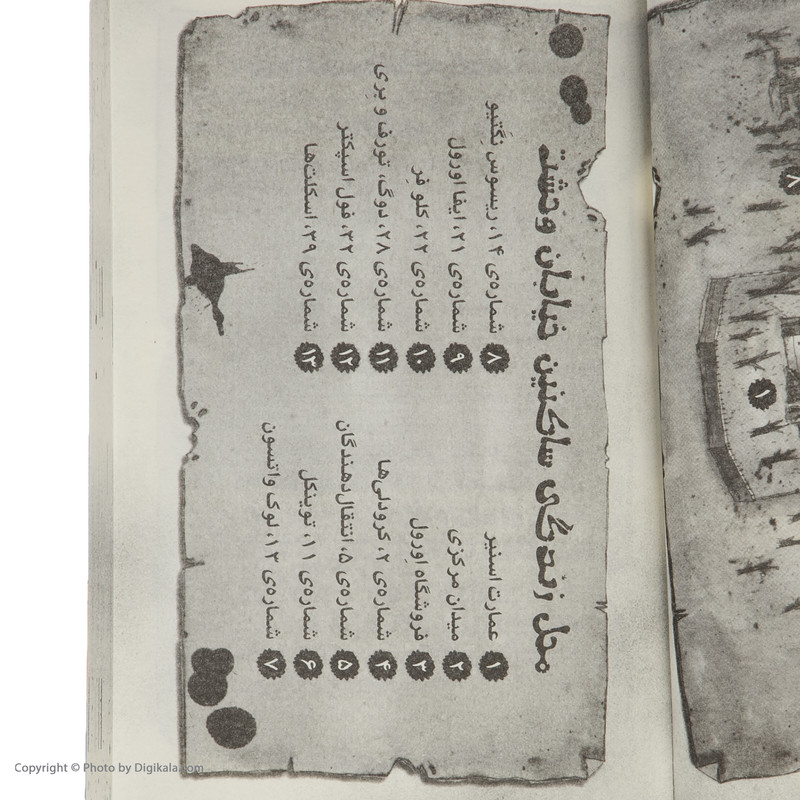 محل زندگی ساکنین خیابان وحشت
۱ عمارت اسنیر
۲ میدان مرکزی
۳ فروشگاه اورول
۴ شماره‌ی ۲، کرودلی‌ها
۵ شماره‌ی ۵، انتقال‌دهندگان
۶ شماره‌ی ۱۱، توینکل
۷ شماره‌ی ۱۳، لوک واتسون
۸ شماره‌ی ۱۴، ریسوس نِگَتیو
۹ شماره‌ی ۲۱، ایفا اورول
۱۰ شماره‌ی ۲۲، کلو فِر
۱۱ شماره‌ی ۲۸، دوگ، تورف و بری
۱۲ شماره‌ی ۳۲، فول اسپکتر
۱۳ شماره‌ی ۳۹، اسکلت‌ها
۸
۱
Copyright © Photo by Digikala.com